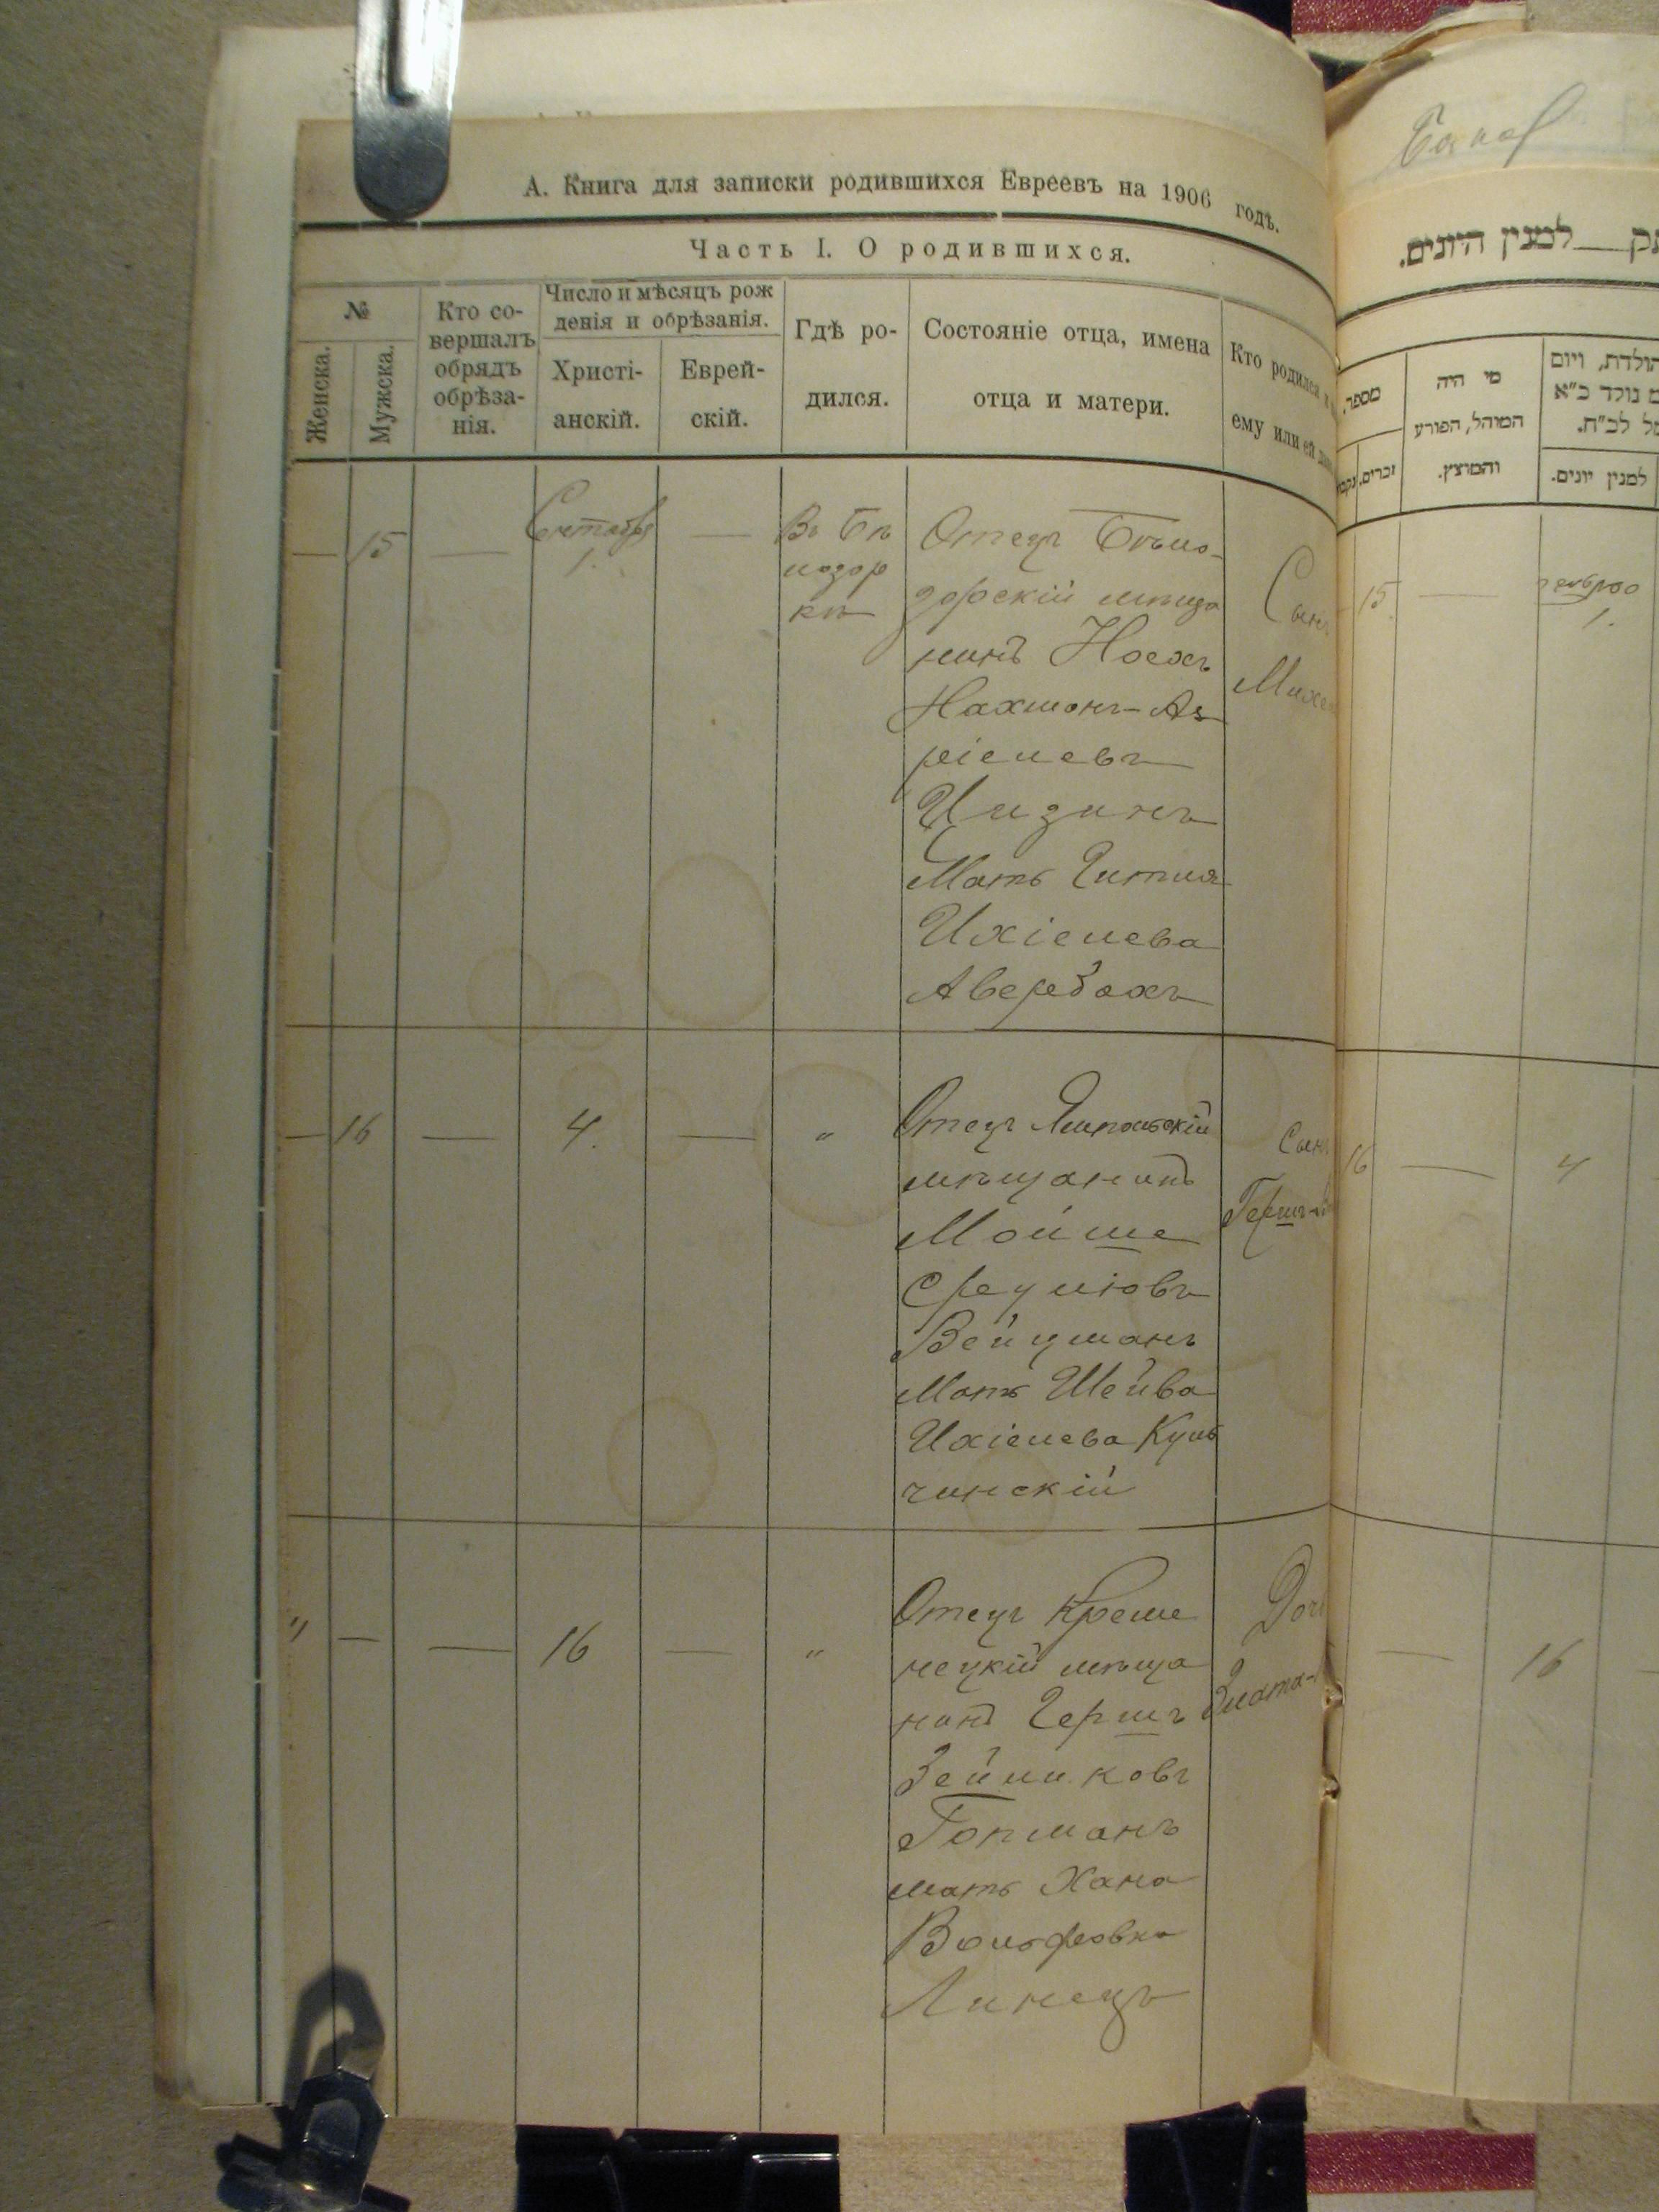 А. Книга для записки родившихся Евреевъ на 1906 годъ.
Часть I. О родившихся.
№
Женска.
Мужска.
Кто со-
вершалъ
обрядъ
обрѣза-
нія.
Число и мѣсяцъ рож
денія и обрѣзанія.
Христі-
анскій.
Еврей-
скій.
Гдѣ ро-
дился.
Состояніе отца, имена
отца и матери.
Кто родился и
ему или ей
— 15 — Сентября
1. —
Въ Бѣ
лозор
кѣ
Отецъ Бѣло-
зорскій мѣща
нинъ Носехъ
Нахманъ-Аз
ріелевъ
Цизинъ
Мать Гитля
Ихіелева
Авербахъ
Сынъ
Михе
— 16 — 4. — "
Отецъ Ямпольскій
мѣщанинъ
Мойше
Сруліовъ
Вейцманъ
Мать Шейва
Ихіелева Куль
чинскій
Сынъ
Гершъ-
" — — 16 — "
Отецъ Креме
нецкій мѣща
нинъ Гершъ
Зейликовъ
Гопманъ
мать Хана
Вольфовна
Линецъ
Дочь
Злата-
למנין היונים.
מספר
זכרים.
מי היה
המוהל, הפורע
והמוצץ.
למנין יונים.
15 — 1.
16 — 4
— 16